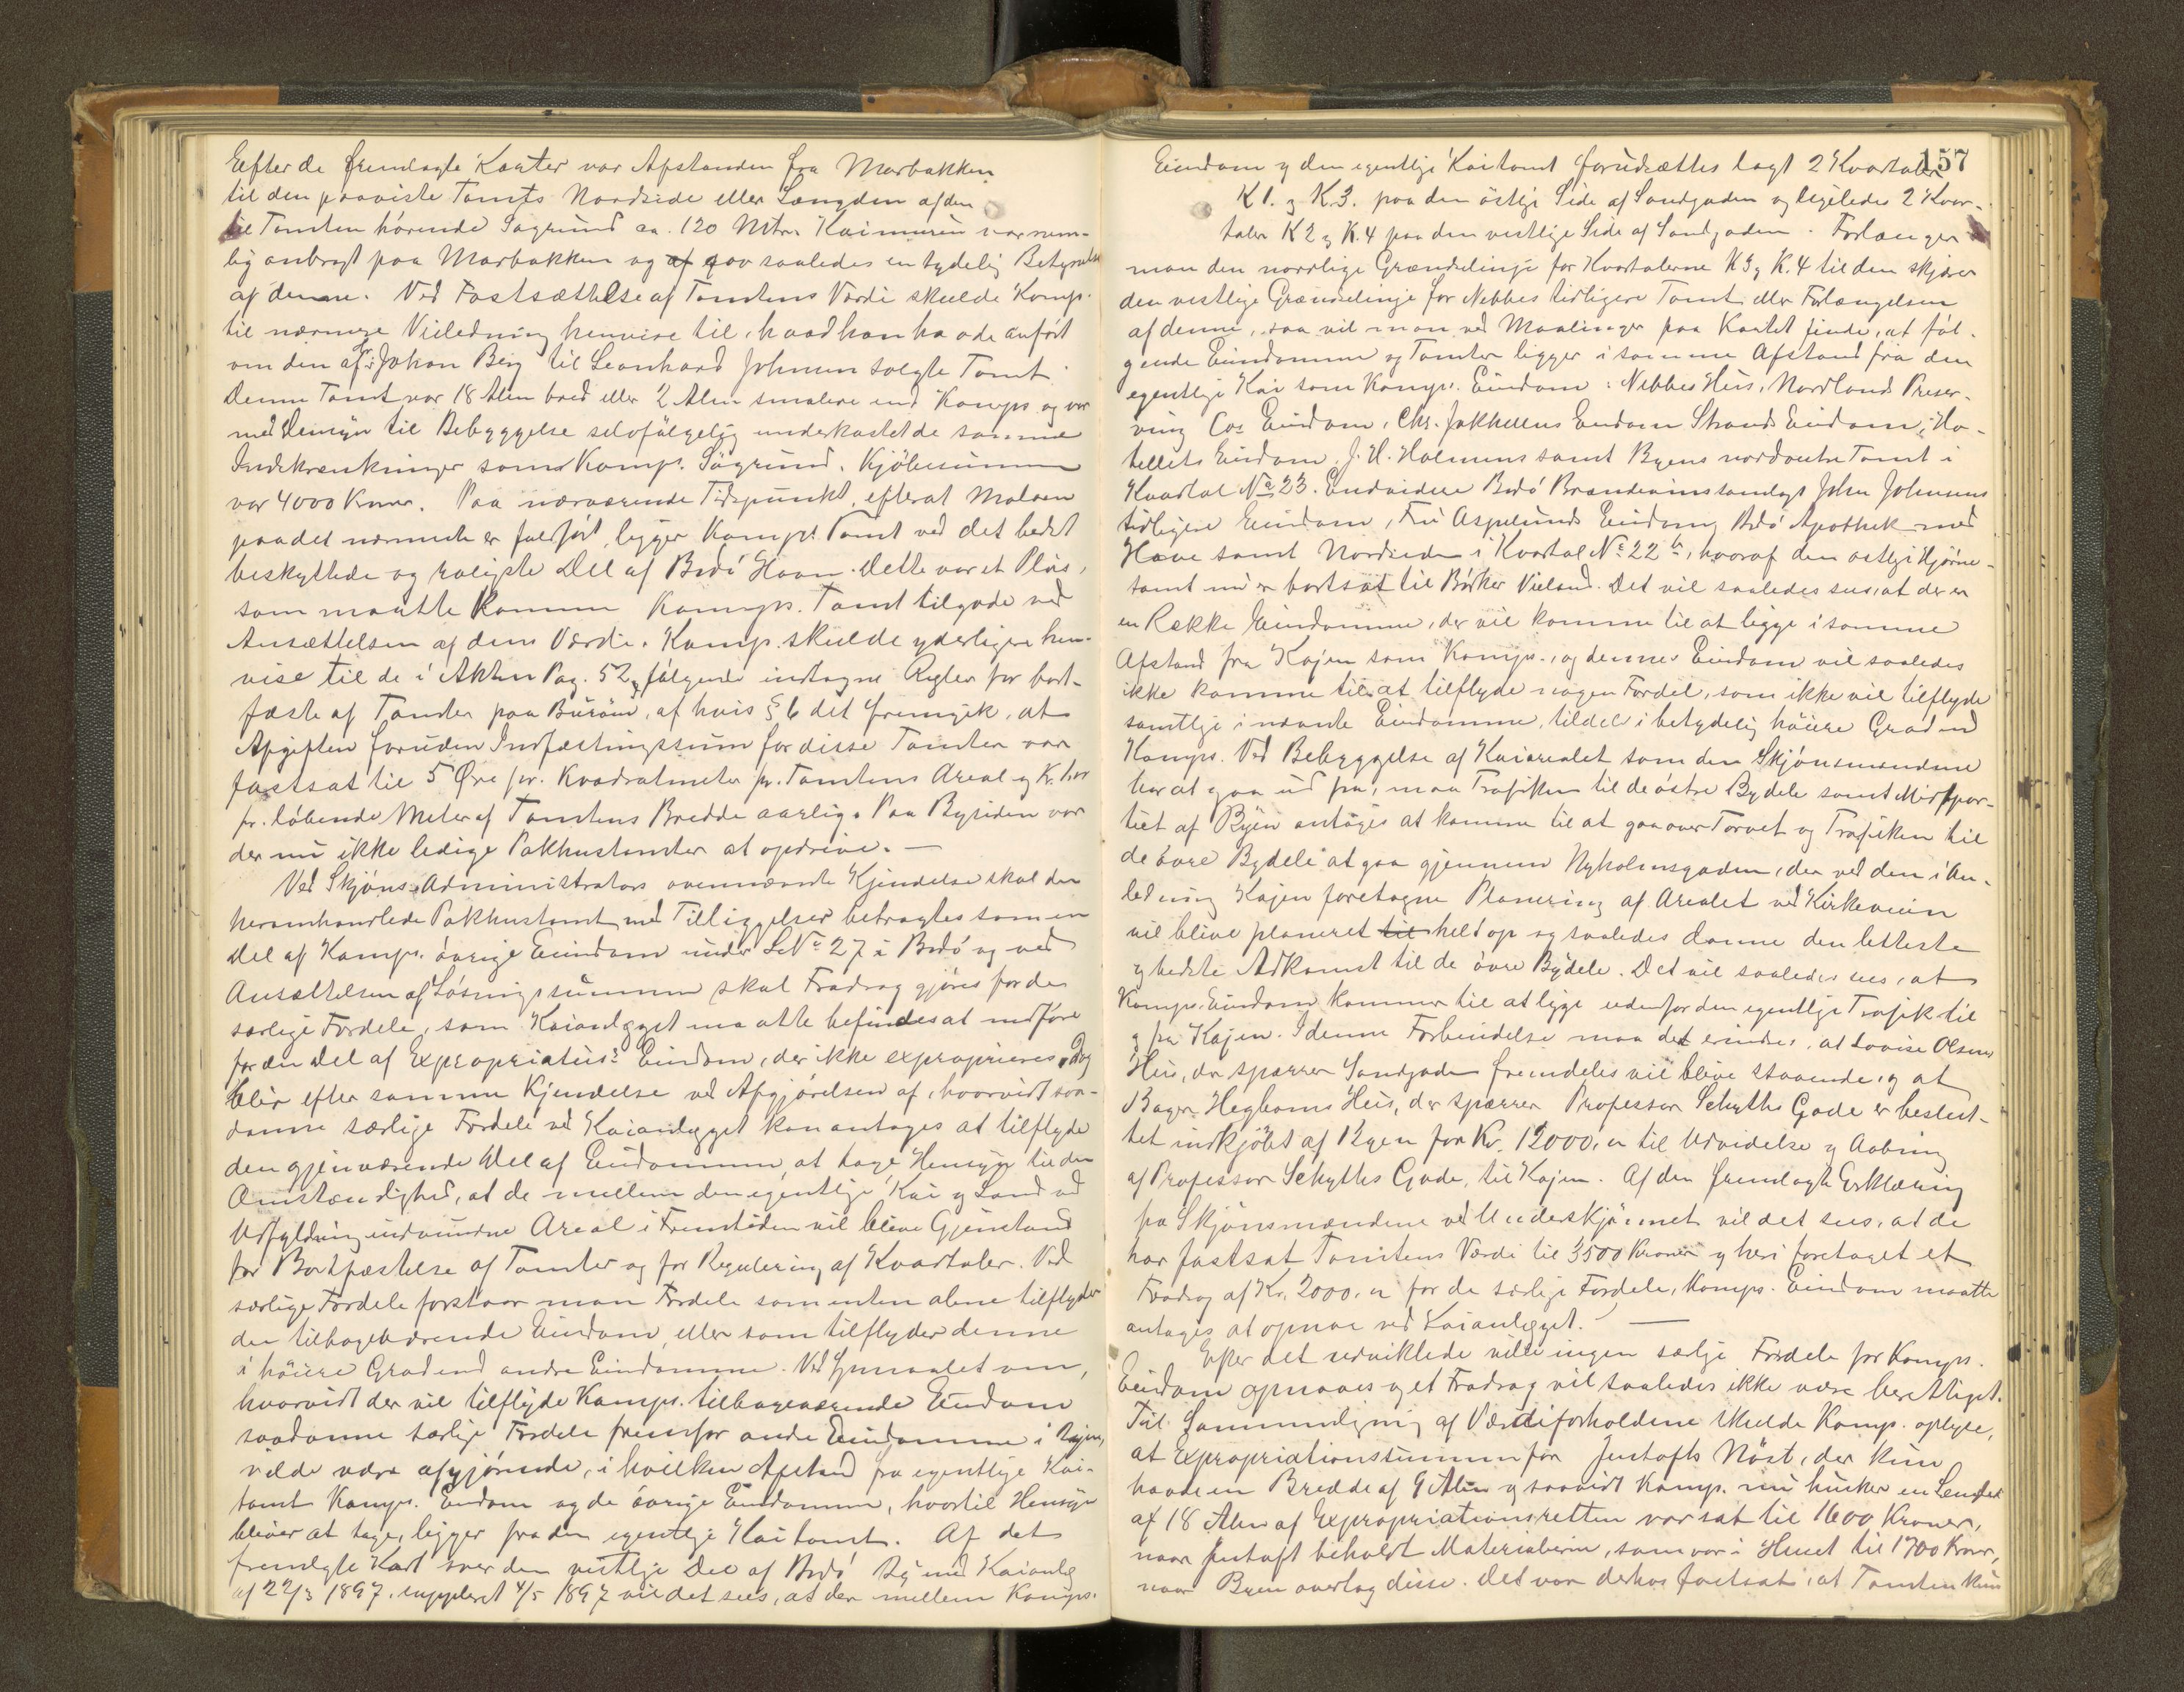 Eefter de fremlagte Karter var Afstanden fra Marbakken
til den paaviste Tomts Nordside eller Længden af den
til Tomten hørende Søgrund ca. 120 Mtr. Kaimuren var nem-
lig anbragt paa Marbakken og gav saaledes en tydelig Betegnelse
af denne. Ved Fastsættelse af Tomtens Værdi skulde Komp.
til nærmere Veiledning henvise til, hvad han havde anført
om den af Fr. Jakon Berg til Leonhard Johnsen solgte Tomt.
Denne Tomt var 18 Alen bred eller 2 Alen smalere end Komps. og var
med Hensyn til Bebyggelse selvfølgelig underkastet de samme
Indskrænkninger som Komps. Søgrund. Kjøbesummen
var 4000 Kroner. Paa nærværende Tidspunkt, efterat Moloen
paa det nærmeste er fuldført, ligger Komps. Tomt ved det bedst
beskyttede og roligste Del af Bodø Havn. Dette var et Plus,
som maatte komme Komps. Tomt tilgode ved
Ansættelsen af dens Værdi. Komp. skulde yderligere hen-
vise til de i Akten Pag. 52 følgende indtagne Regler for bort-
fæste af Tomter paa Burøen, af hvis § 6 det fremgik, at
Afgiften foruden Indfæstningssum for disse Tomter var
fastsat til 5 Øre pr. Kvadratmeter pr. Tomtens Areal og Kr. 1.00
pr. løbende Meter af Tomtens Bredde aarlig. Paa Bysiden var
der nu ikke ledige Pakhustomter at opdrive. —
Ved Skjøns-Administrators ovennævnte Kjendelse skal den
heromhandlede Pakhustomt med Tilliggelser betragtes som en
Del af Komps. øvrige Eiendom under LNº 27 i Bodø og ved
Ansættelsen af Løsningssummen skal Fradrag gjøres for de
særlige Fordele, som Kaianlægget maatte befindes at medføre
for den Del af Expropriatus's Eiendom, der ikke exproprieres. Dog
bliver efter samme Kjendelse ved Afgjørelsen af, hvorvidt saa-
danne særlige Fordele ved Kaianlægget kan antages at tilflyde
den gjenværende Del af Eiendommen, at tage Hensyn til den
Omstændighed, at de mellem den egentlige Kai og Land ved
Udfyldning indvundne Areal i Fremtiden vil blive Gjenstand
for Bortfæstelse af Tomter og for Regulering af Kvartaler. Ved
særlige Fordele forstaar man Fordele som enten alene tilflyder
den tilbageværende Eiendom, eller som tilflyder denne
i høiere Grad end andre Eiendomme. Ved Spmaalet om,
hvorvidt der vil tilflyde Komps. tilbageværende Eiendom
saadanne særlige Fordele fremfor andre Eiendomme i Byen,
vilde være afgjørende, i hvilken Afstand fra egentlige Kai-
tomt Komps. Eiendom og de øvrige Eiendomme, hvortil Hensyn
bliver at tage, ligger fra den egentlige Kaitomt. Af det
fremlagte Kart over den vestlige Del af Bodø By med Kaianlæg
af 22/3 1897, suppleret 4/5 1897 vil det sees, at der mellem Komps.
157
Eiendom og den egentlige Kaitomt forudsættes lagt 2 Kvartaler
K 1. og K 3. paa den østlige Side af Sandgaden og ligeledes 2 Kvar-
taler K 2 og K. 4 paa den vestlige Side af Sandgaden. Forlænger
man den nordlige Grændselinje for Kvartalerne K 3 og K. 4 til den skjærer
den vestlige Grændselinje for Nebbes tidligere Tomt eller Forlængelsen
af denne, saa vil man ved Maalinger paa Kartet finde, at føl-
gende Eiendomme og Tomter ligger i samme Afstand fra den
egentlige Kai som Komps. Eiendom: Nebbes Hus, Nordlands Preser-
ving Cos Eiendom, Chr. Jakhellns Eiendom Strands Eiendom, Ho-
tellets Eiendom, J. H. Holmens samt Byens nordøstre Tomt i
Kvartal Nº 23. Endvidere Bodø Brændevinssamlags John Johnsens
tidligere Eiendom, Fru Aspelunds Eiendom, Bodø Apothek med
Have samt Nordsiden i Kvartal Nº 22 b, hvoraf den østlige Hjørne-
tomt nu er bortsat til Bødker Nielsen. Det vil saaledes sees, at der er
en Række Eiendomme, der vil komme til at ligge i samme
Afstand fra Kajen som Komps., og dennes Eiendom vil saaledes
ikke komme til at tilflyde nogen Fordel, som ikke vil tilflyde
samtlige nævnte Eiendomme, tildels i betydelig høiere Grad end
Komps. Ved Bebyggelse af Kaiarealet som den Skjønsmændene
har at gaa ud fra, maa Trafiken til de østre Bydele samt Midtpar-
tiet af Byen antages at komme til at gaa over Torvet og Trafiken til
de øvre Bydele at gaa gjennem Nyholmsgaden, der ved den i An-
ledning Kajen foretagne Planering af Arealet ved Kirkeveien
vil blive planeret til helt op og saaledes danne den letteste
og bedste Adkomst til de øvre Bydele. Det vil saaledes sees, at
Komps. Eiendom kommer til at ligge udenfor den egentlige Trafik til
og fra Kajen. I denne Forbindelse maa det erindres, at Lovise Olsens
Hus, der spærrer Sandgaden fremdeles vil blive staaende, og at
Bager Hegboms Hus, der spærrer Professor Schyttes Gade er beslut-
tet indkjøbt af Byen for Kr. 12000.00 til Udvidelse og Aabning
af Professor Schyttes Gade, til Kajen. Af den fremlagte Erklæring
fra Skjønsmændene ved Underskjønnet vil det sees, at de
har fastsat Tomtens Værdi til 3500 Kroner og heri foretaget et
Fradrag af Kr. 2000.00 for de særlige Fordele, Komps. Eiendom maatte
antages at opnaa ved Kaianlægget. —
Efter det udviklede vilde ingen særlige Fordele for Komps.
Eiendom opnaaes og et Fradrag vil saaledes ikke være berettiget.
Til Sammenligning af Værdiforholdene skulde Komp. oplyse,
at Expropriationssummen for Jentofts Nøst, der kun
havde en Bredde af 9 Alen og saavidt Komp. nu husker en Længde
af 18 Alen af Expropriationsretten var sat til 1600 Kroner,
naar Jentoft beholdt Materialierne, som var i Huset til 1700 Kroner,
naar Byen overtog disse. Det var derhos fastsat, at Tomten kun